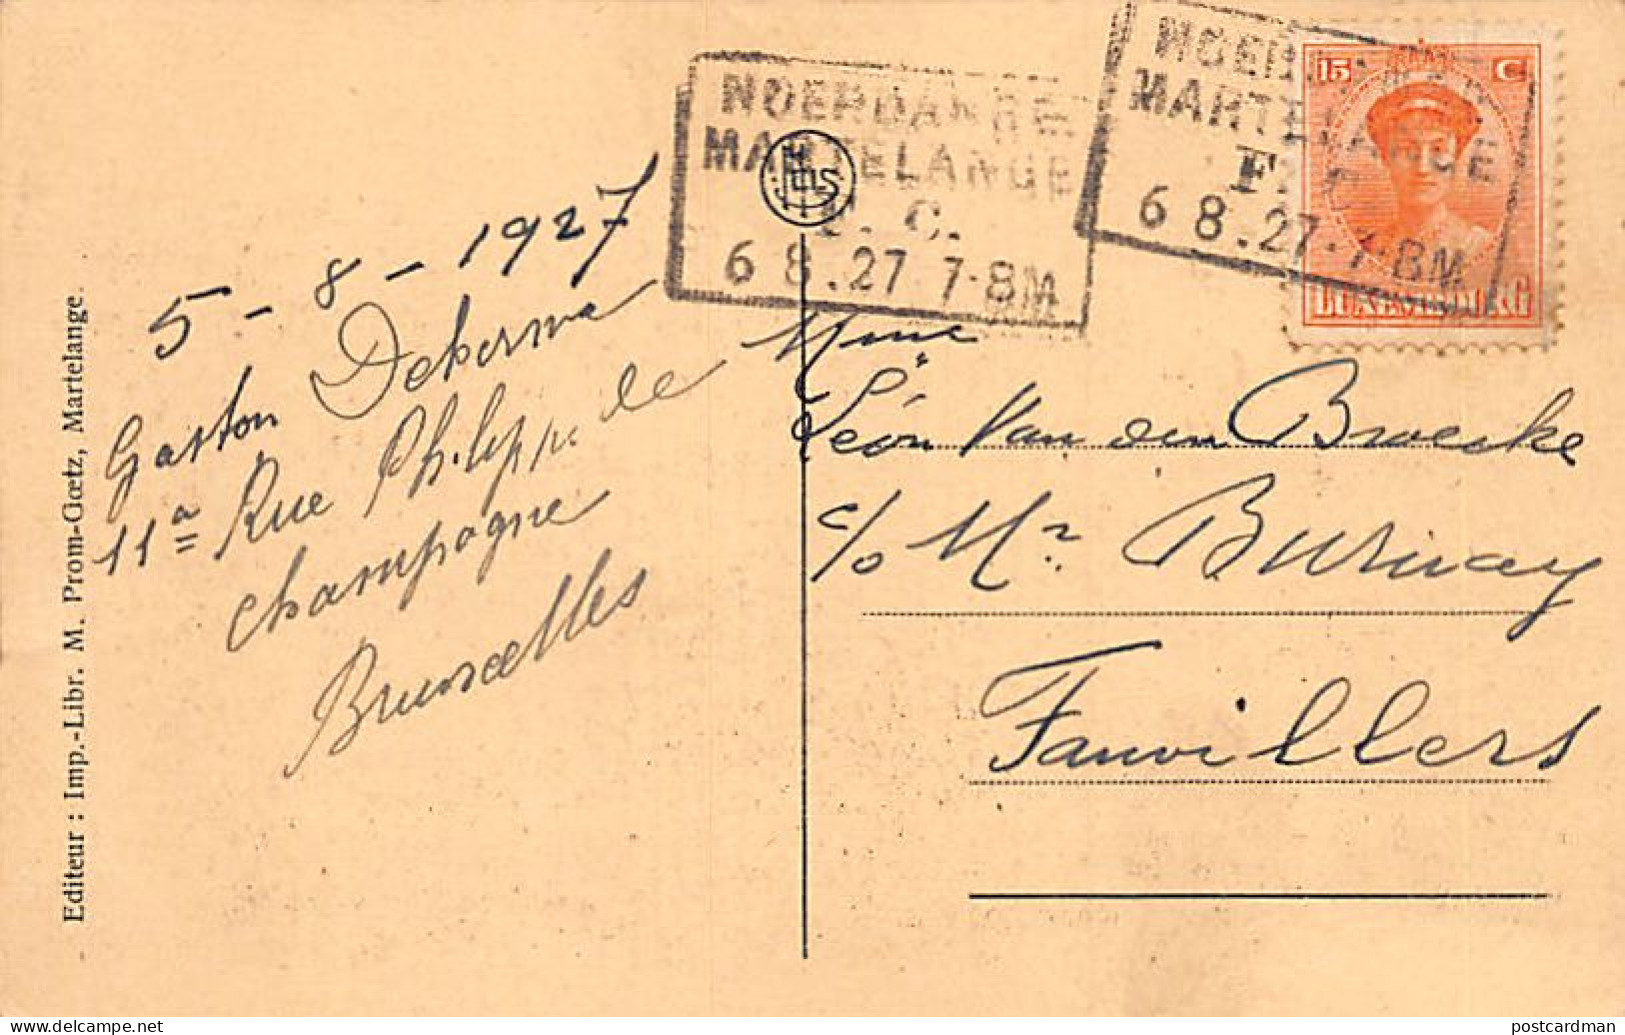 NOERDANGE
MARTELANGE
F. C.
6 8.27 7-8M
NOERDANGE
MARTELANGE
F. C.
6 8.27 7-8M
15 C
LUXEMBOURG
5 - 8 - 1927
Gaston
11ª Rue Philippe de
Champagne
Bruxelles
Mme
Léon Van den Broecke
c/o Mr Burnay
Fauvillers
Editeur : Imp.-Libr. M. Prom-Gœtz, Martelange.
delcampe.net
postcardman